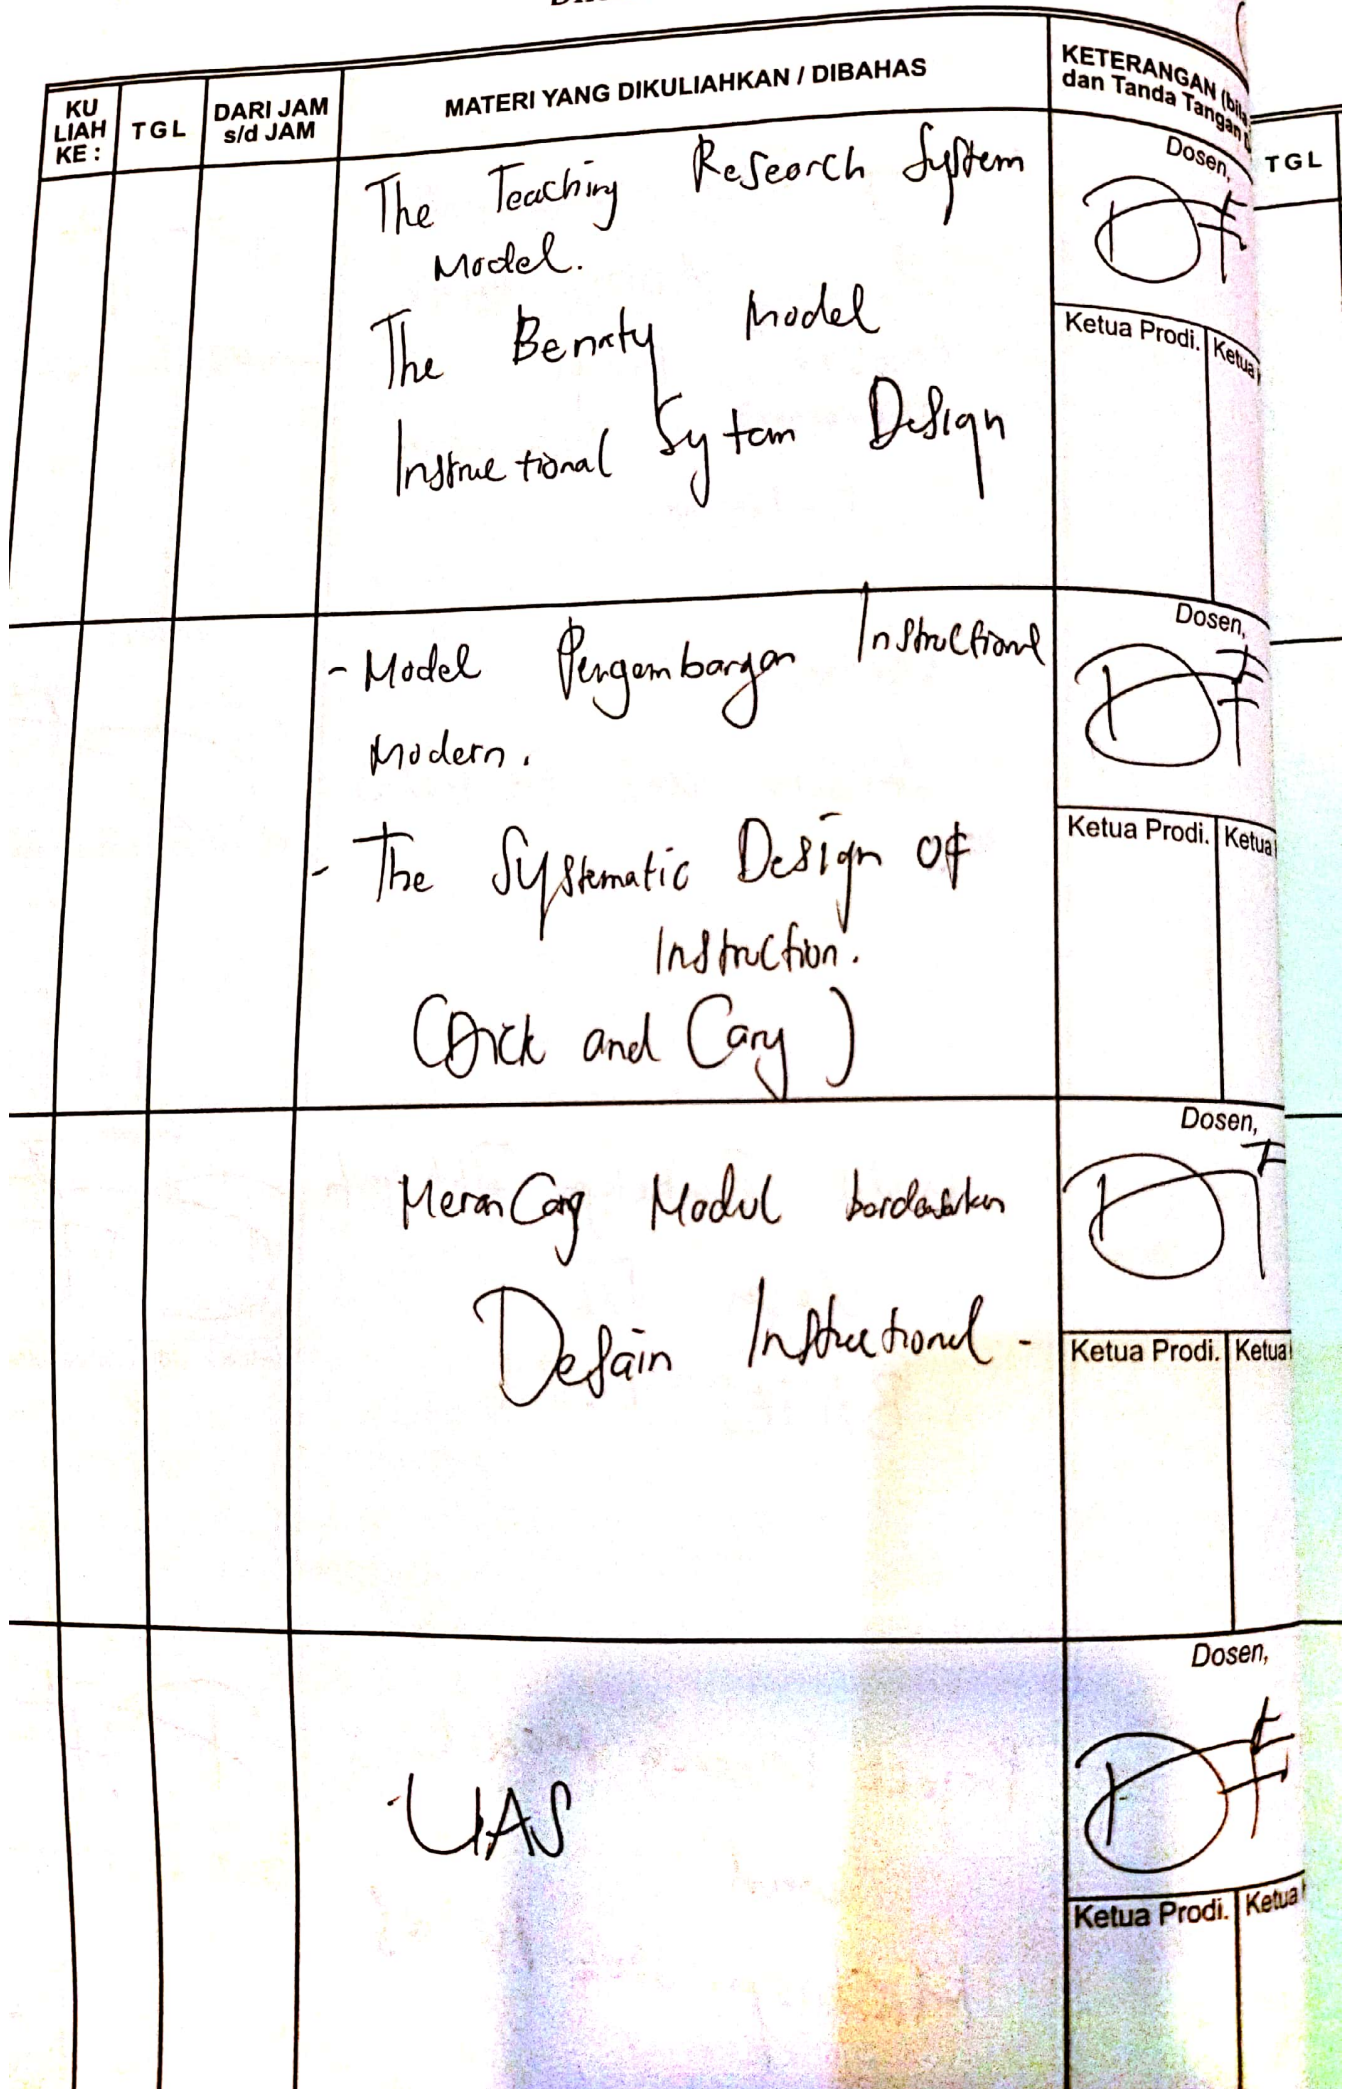 KU
LIAH
KE :
TGL
DARI JAM
s/d JAM
MATERI YANG DIKULIAHKAN / DIBAHAS
KETERANGAN (bila
dan Tanda Tangan
TGL
The Teaching Research System
Model.
The Model
Instructional Sytem Design
Dosen,
Ketua Prodi.
Ketua
- Model Pengembangan Instructional
Modern.
- The Systematic Design of
Instruction.
(Dick and Cary)
Dosen,
Ketua Prodi.
Ketua
Merancang Modul berdasarkan
Desain Instructional -
Dosen,
Ketua Prodi.
Ketua
UAS
Dosen,
Ketua Prodi.
Ketua